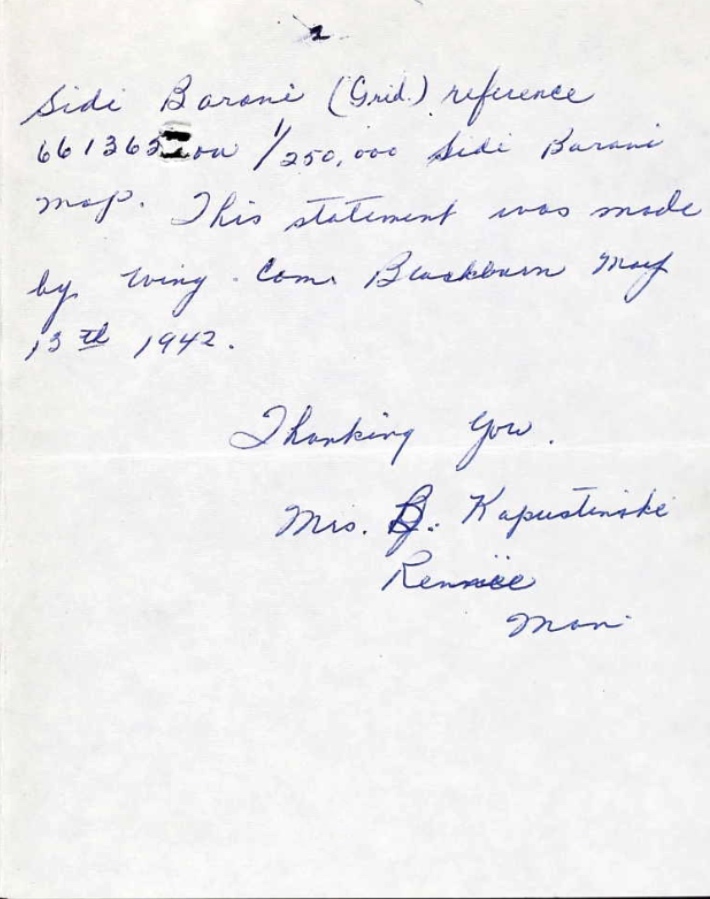 2
Sidi Barani (Grid.) reference
661363 on 1/250,000 Sidi Barani
map. This statement was made
by Wing. Com. Blackburn May
13th 1942.
Thanking You.
Mrs. B. Kapustinski
Rennie
Man.